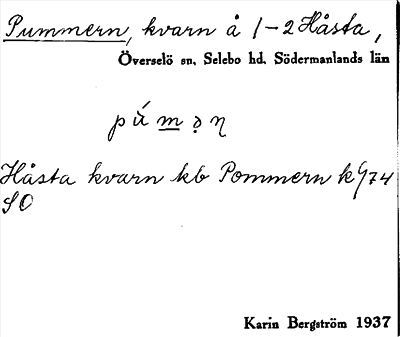 Pummern, kvarn å 1-2 Håsta,
Överselö sn, Selebo hd, Södermanlands län
pú̄m̲ə̣ɳ
Håsta kvarn kb Pommern k 974
SO
Karin Bergström 1937